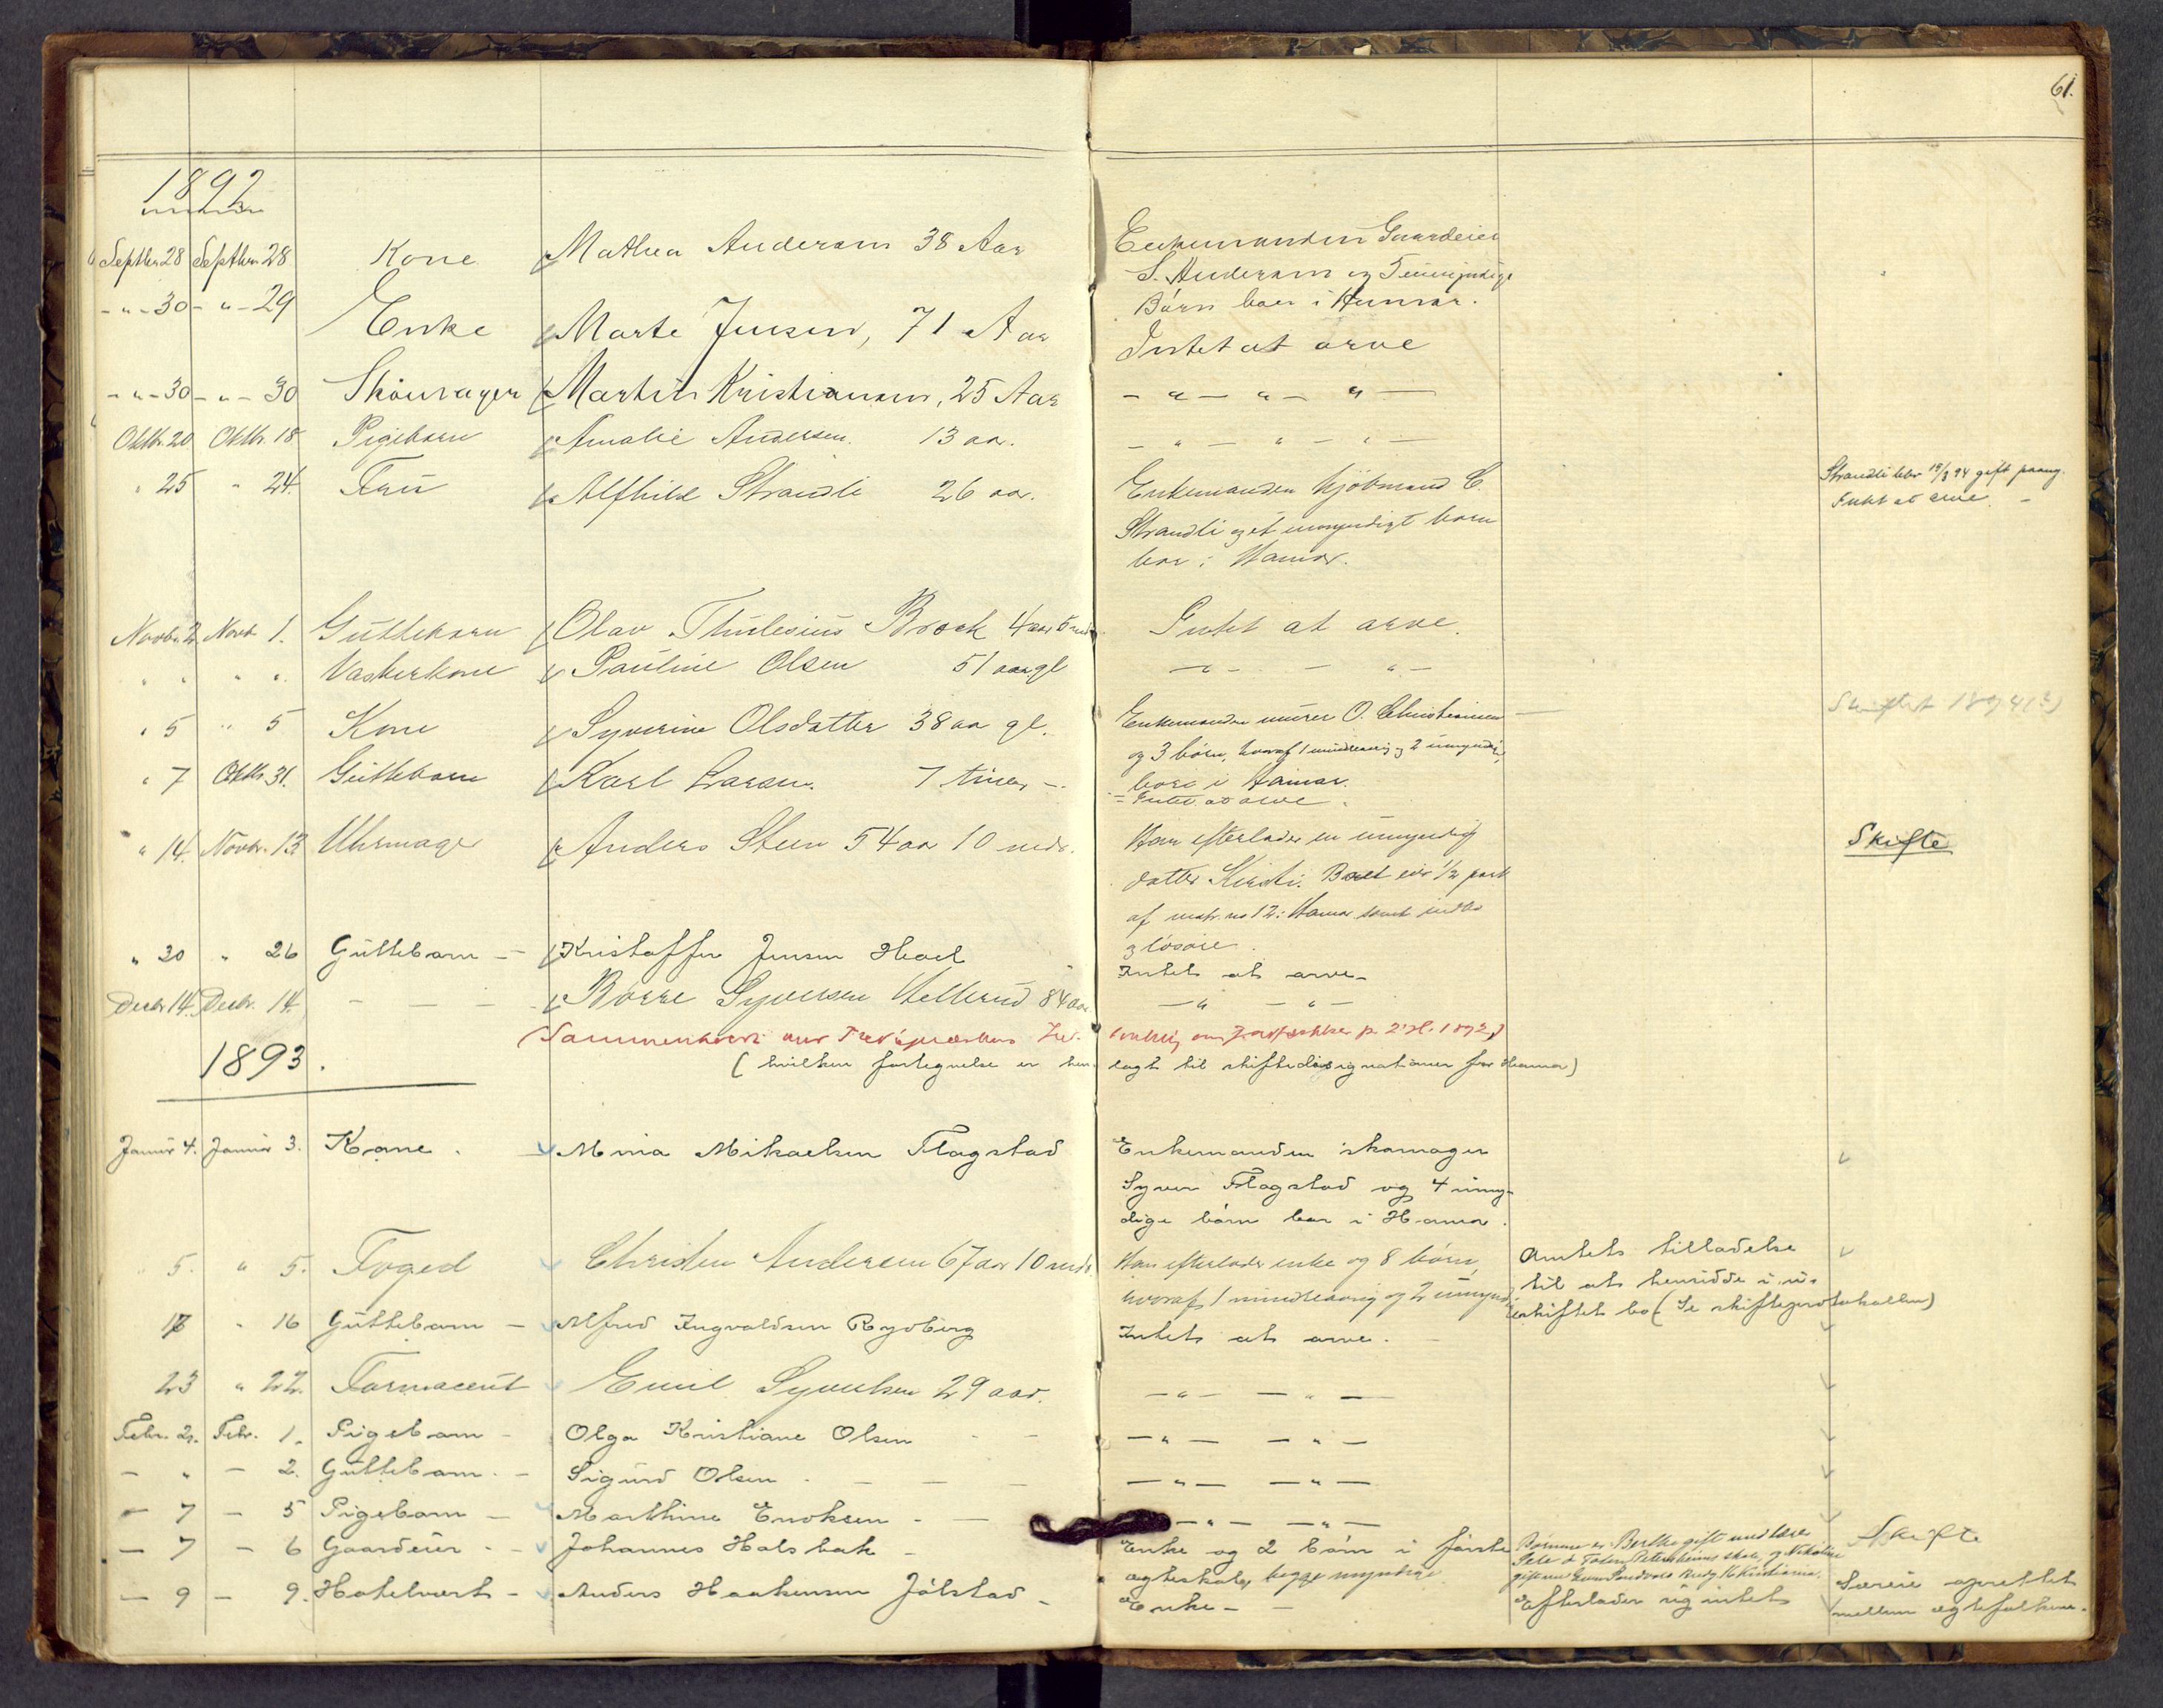 61.
1892
Septbr 28 Septbr 28 Kone Mathea Andersen 38 Aar Enkemanden Gaardeier
S. Andersen og 5 umyndige
Børn boer i Hamar.
- " - 30 - " - 29 Enke Marte Jensen, 71 Aar Intet at arve
- " - 30 - " - 30 Skomager Martin Kristiansen, 25 Aar - " - " - " -
Oktb. 20 Oktb. 18 Pigebarn Amalie Andersen. 13 aar. - " - " - " -
" 25 " 24. Frü Alfhild Strandli 26 aar. Enkemanden kjøbmand C. Strandli blev 19/3 94 gift paany.
Strandli og et umyndigt barn Intet at arve -
bor i Hamar.
Novbr. 2 Novb. 1. Güttebarn Olav Thulesius Brock 4 aar 5 mdr Intet at arve.
" " " " Vaskerkone Pauline Olsen 51 aar gl - " - - " -
" 5 " 5 Kone Syverine Olsdatter 38 aar gl. Enkemanden murer O. Christiansen Skiftet 1894 (?)
og 3 børn, hvoraf 1 mindreaarig og 2 umyndige,
bor i Hamar.
" 7 Oktb. 31. Güttebarn Karl Larsen. 7 timer -. = Intet at arve.
" 14. Novbr. 13 Uhrmager Anders Steen 54 aar 10 mdr. Han efterlader en umyndig Skifte
datter Kirsti. Boet eier 1/2 part
af matr. no 12 i Hamar samt indbo
og løsøre.
" 30 " 26 Güttebarn - Kristoffer Jensen Hoel Intet at arve -
Decbr. 14. Decbr. 14. - - - Børre Syversen Hellerud 84 aar - " - " -
(Sammenholdt med
( hvilken fortegnelse er hen- lagt til skiftedesignationer for Hamar)
1893.
Januar 4. Januar 3. Kone. Mina Mikaelsen Flagstad Enkemanden skomager
Syver Flagstad og 4 umyn-
dige børn bor i Hamar.
" 5. " 5. Foged Christen Andersen 67 aar 10 mdr. Han efterlader enke og 8 børn, Amtets tilladelse
hvoraf 1 mindreaarig og 2 umyndige til at hensidde i u-
skiftet bo (Se skifteprotokollen)
17 " 16 Güttebarn - Alfred Ingvaldsen Rydberg Intet at arve. -
23 " 22. Farmaceut Emil Syvertsen 29 aar. - " - - " -
Febr. 2. Febr. 1. Pigebarn - Olga Kristiane Olsen - " - - " -
- " - 2. Güttebarn - Sigurd Olsen - " - - " -
- 7 - 5 Pigebarn - Marthine Enoksen - " - - " -
- 7 - 6 Gaardeier - Johannes Halsbak - Enke og 2 børn i første Børnene er Berthe gift med lærer Skifte
ægteskab, begge myndige
- 9 - 9. Hotelvert - Anders Haakensen Jølstad - Enke - Efterlader sig intet Særeie oprettet
mellem ægtefolkene.